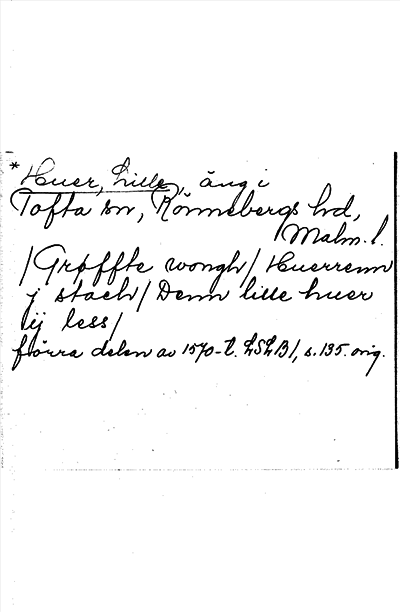 * Huer, Lille, äng i
Tofta sn, Rönnebergs hd,
Malm. l.
/Grøffte wongh/ Huerrenn
j stach/ Denn lille huer
ij less/
förra delen av 1570-t. LSLB1, s. 135. orig.